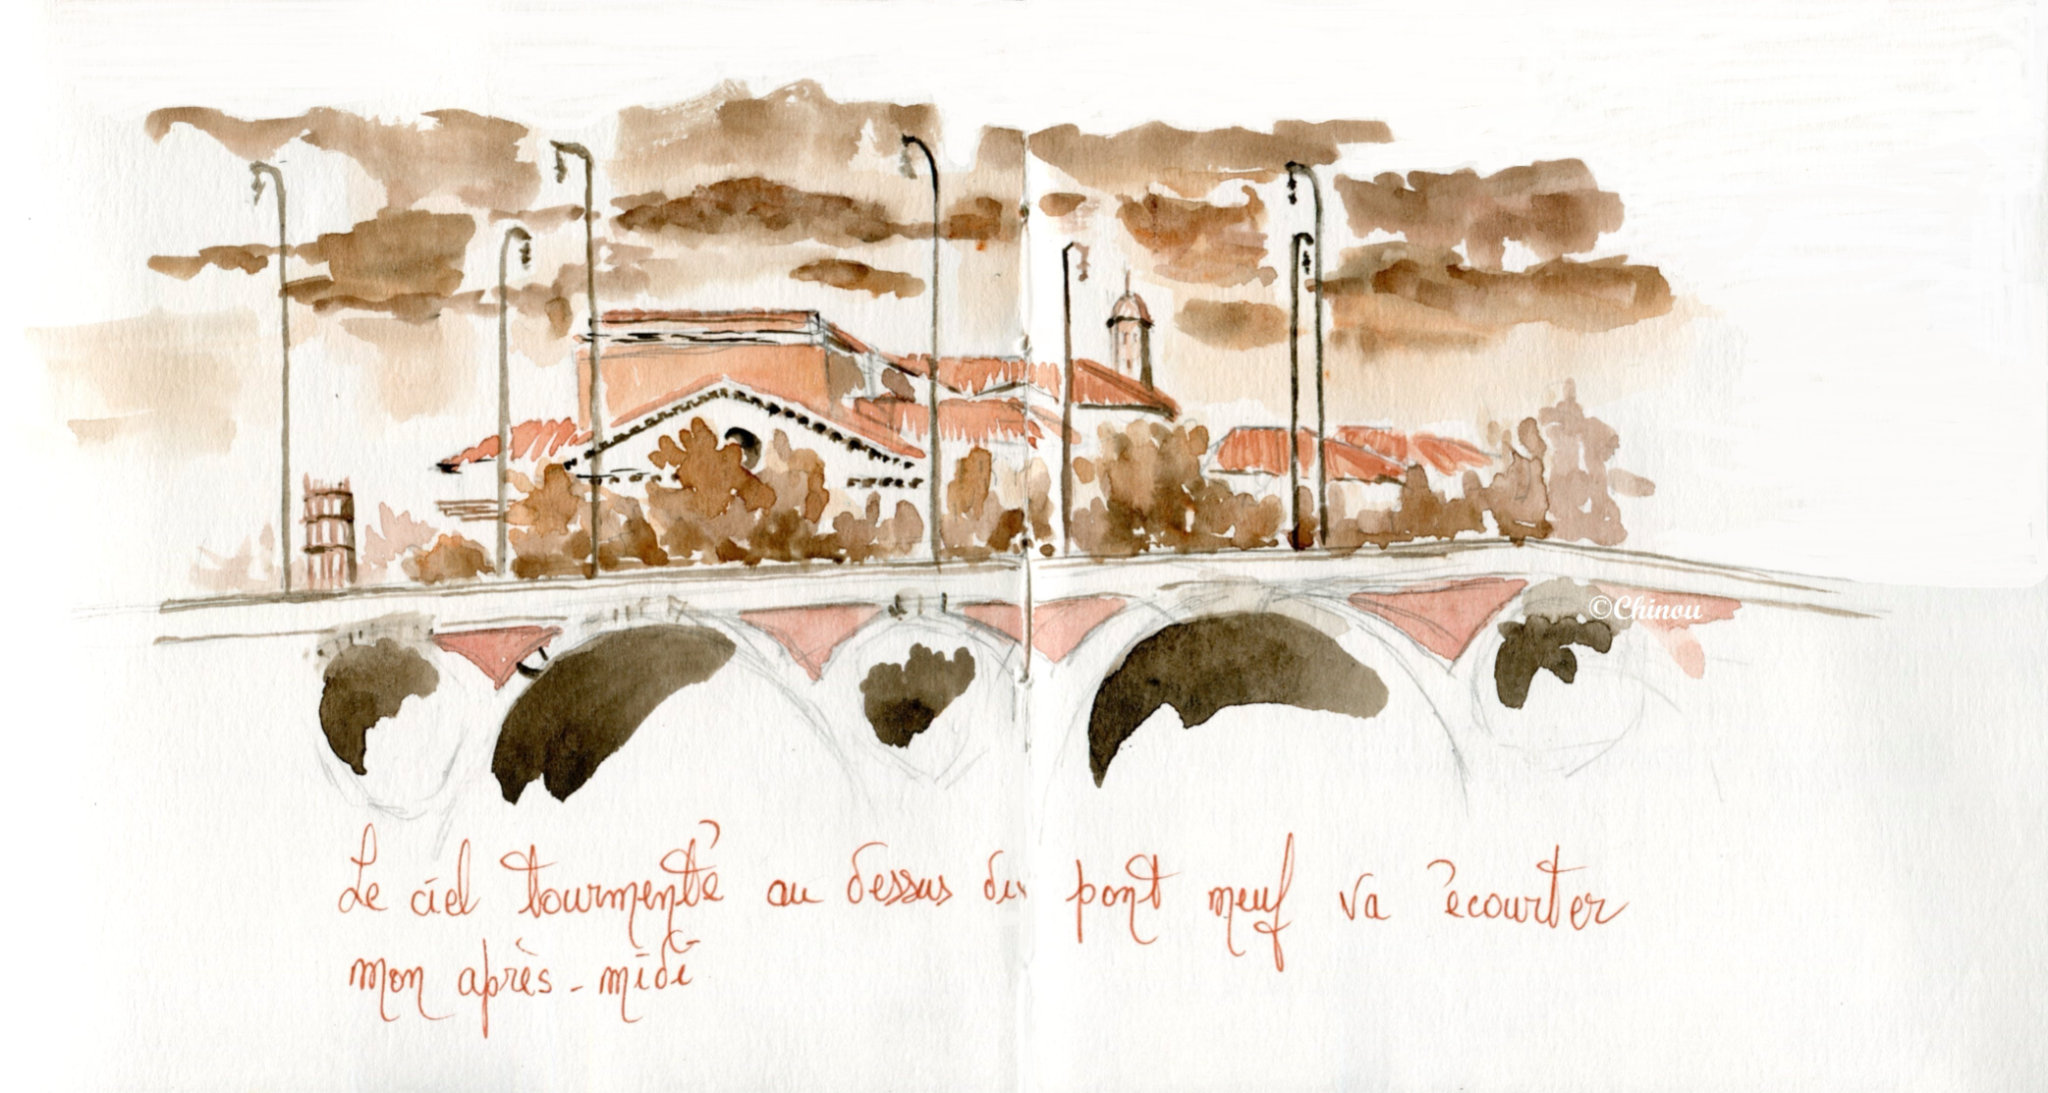 ©Chinou
Le ciel tourmenté au dessus du pont neuf va écourter
mon après-midi